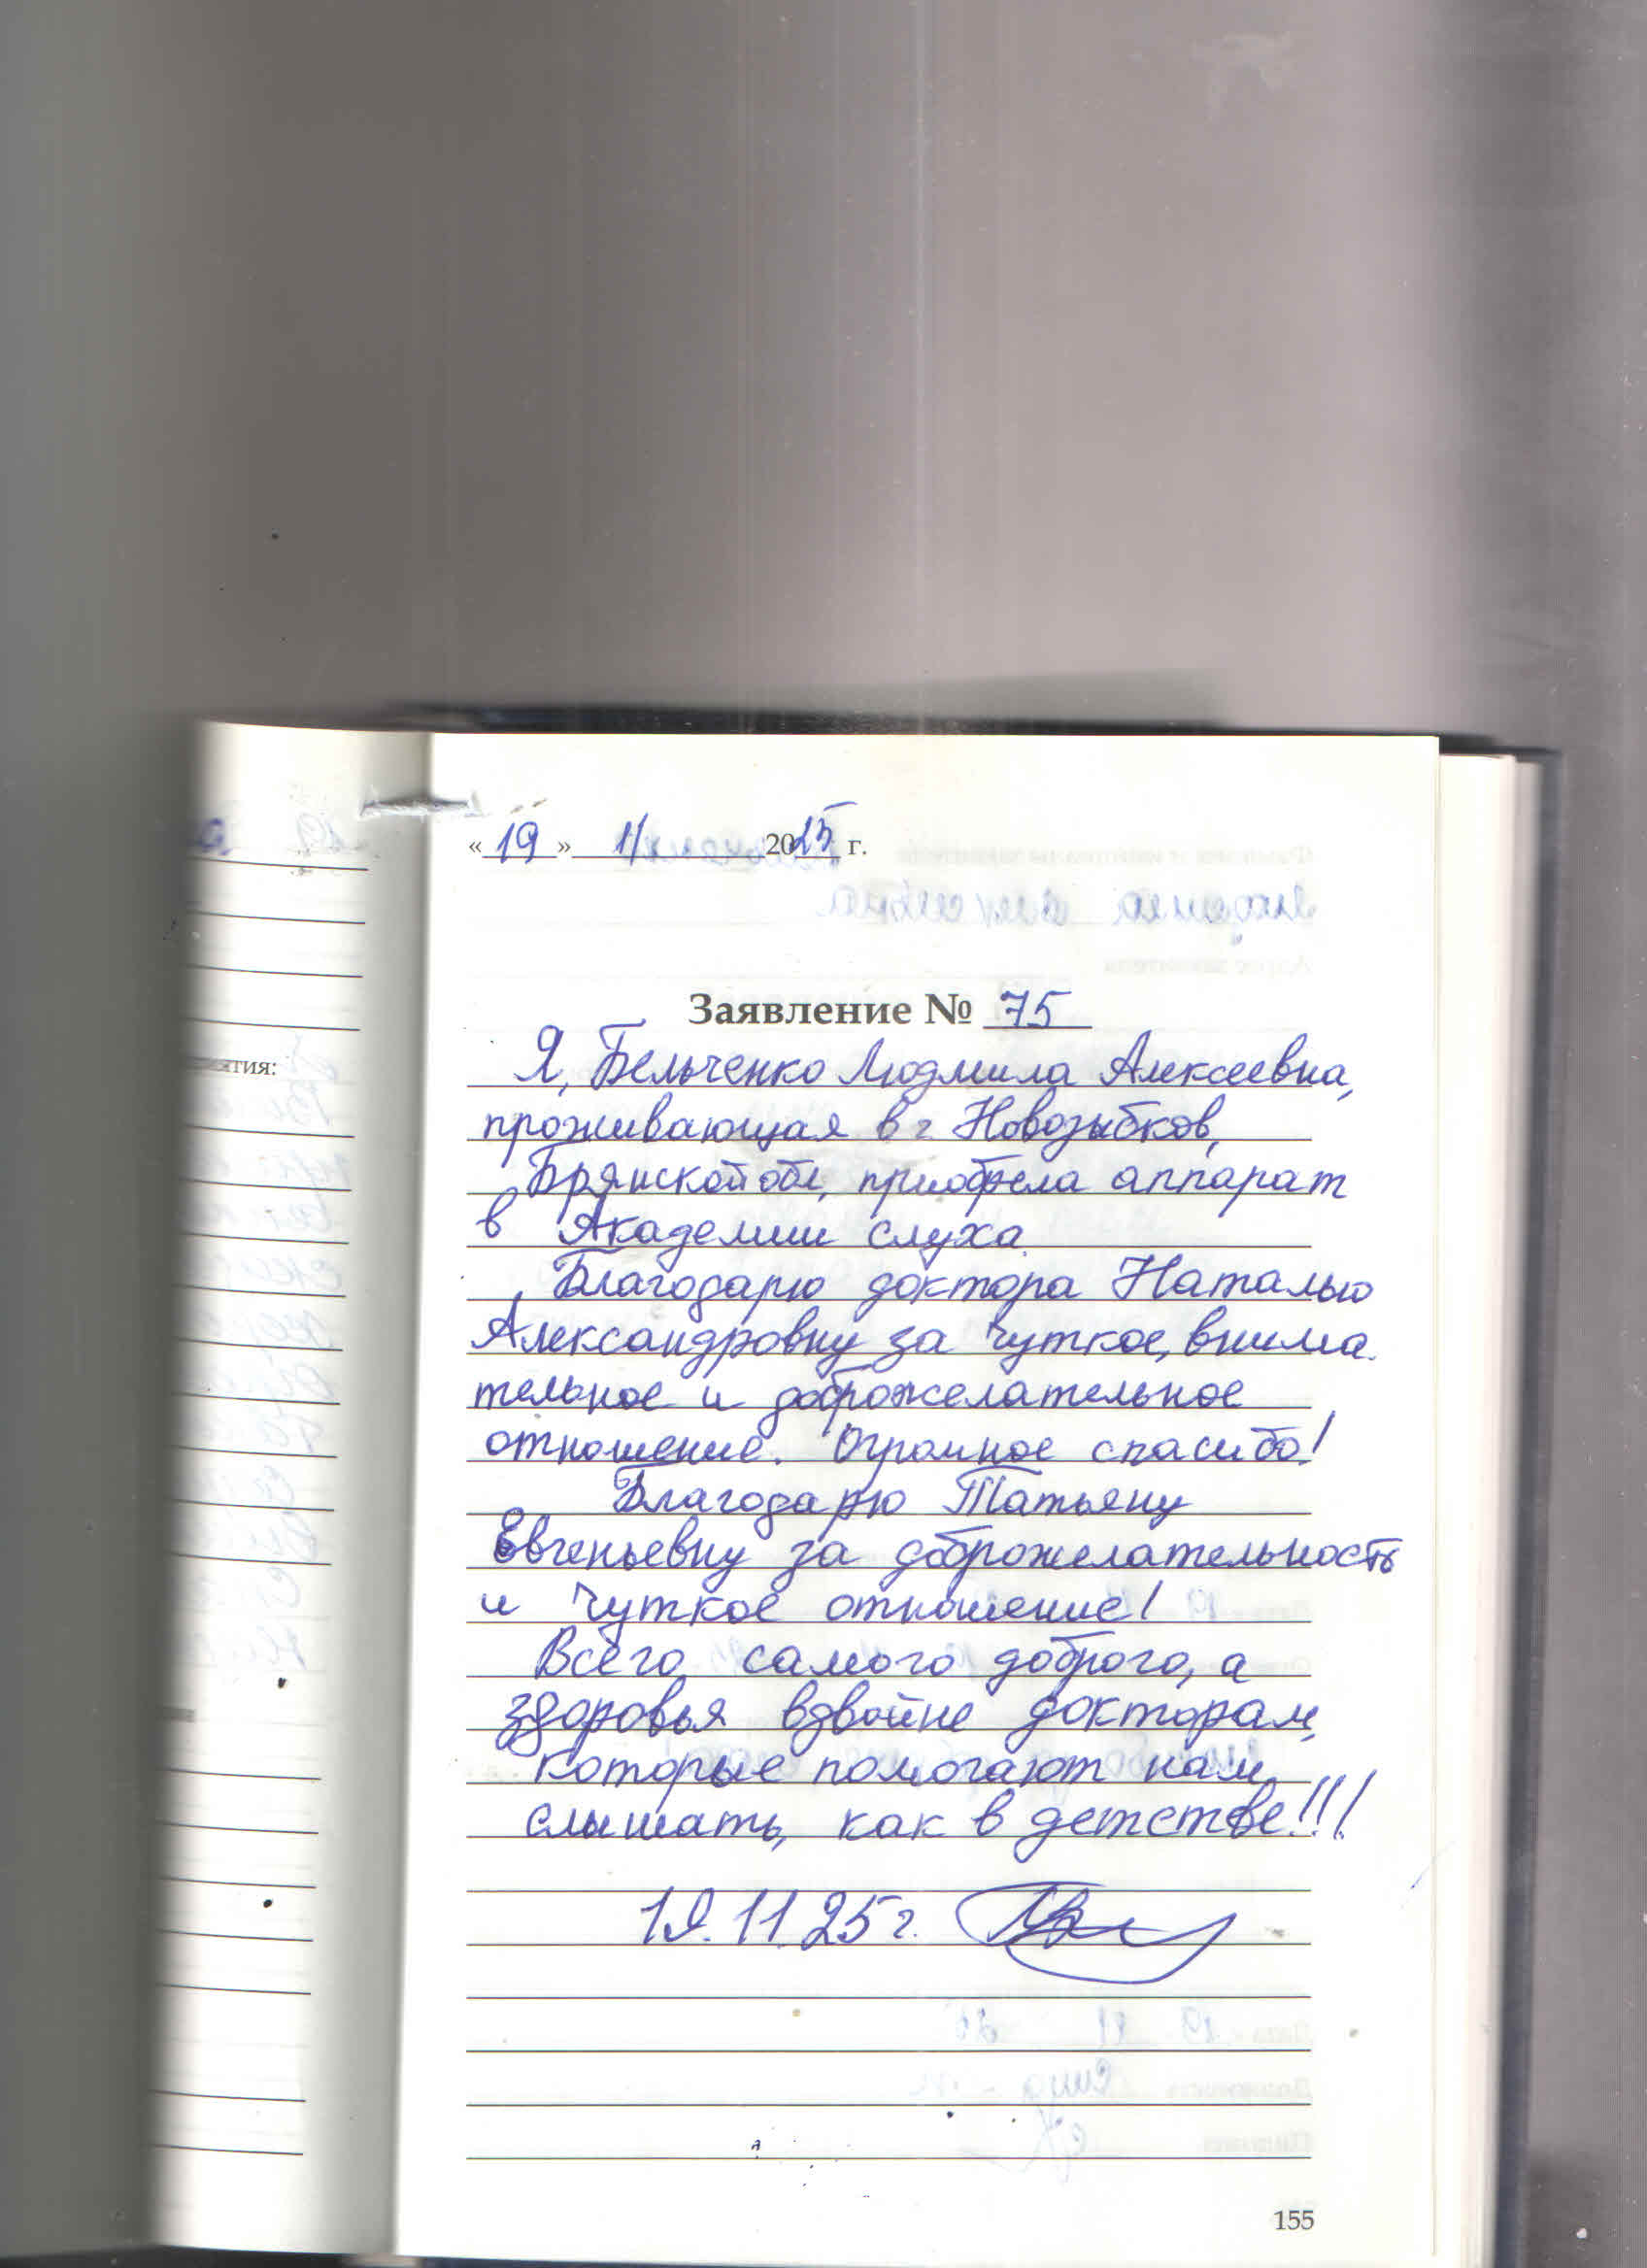 «19» 11 2025 г.
Заявление № 75
Я, Бельченко Людмила Алексеевна,
проживающая в г Новозыбков,
Брянской обл, приобрела аппарат
в Академии слуха
Благодарю доктора Наталью
Александровну за чуткое, внима-
тельное и доброжелательное
отношение. Огромное спасибо!
Благодарю Татьяну
Евгеньевну за доброжелательность
и чуткое отношение!
Всего самого доброго, а
здоровья вдвойне докторам,
которые помогают нам
слышать, как в детстве!!!
19.11.25 г.
155